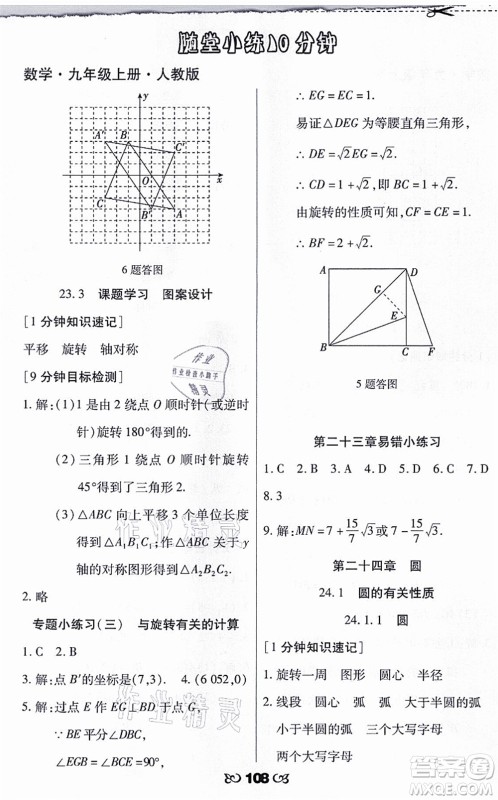 随堂小练10分钟
数学·九年级上册·人教版
y
A′
B
C′
O
x
C
B′
A
6题答图
23.3 课题学习 图案设计
[1分钟知识速记]
平移 旋转 轴对称
[9分钟目标检测]
1.解:(1)1是由2绕点O顺时针(或逆时
针)旋转180°得到的.
(2)三角形1绕点O顺时针旋转
45°得到了三角形2.
(3)△ABC向上平移3个单位长度
得到△A₁B₁C₁,作△ABC关于y
轴的对称图形得到△A₂B₂C₂.
2.略
专题小练习(三) 与旋转有关的计算
1.C 2.B
3.解:点B′的坐标是(7,3). 4.(6 052,0)
5.解:过点E作EG⊥BD于点G,
∵BE平分∠CBD,
∠EGB=∠BCE=90°,
∴EG=EC=1.
易证△DEG为等腰直角三角形,
∴DE=√2EG=√2.
∴CD=1+√2,即BC=1+√2.
由旋转的性质可知,CF=CE=1.
∴BF=2+√2.
A
D
G
E
B
C
F
5题答图
第二十三章易错小练习
1.C 2.B 3.A 4.C 5.D 6.D 7.D
8.3
9.解:MN=7+15/7√3或7-15/7√3.
第二十四章 圆
24.1 圆的有关性质
24.1.1 圆
[1分钟知识速记]
1.旋转一周 图形 圆心 半径
2.线段 圆心 弧 弧 大于半圆的弧
小于半圆的弧 三个大写字母
两个大写字母
108
作业
作业检查小助手
精灵
作业精灵
作业精灵
答案圈
MXQE.COM